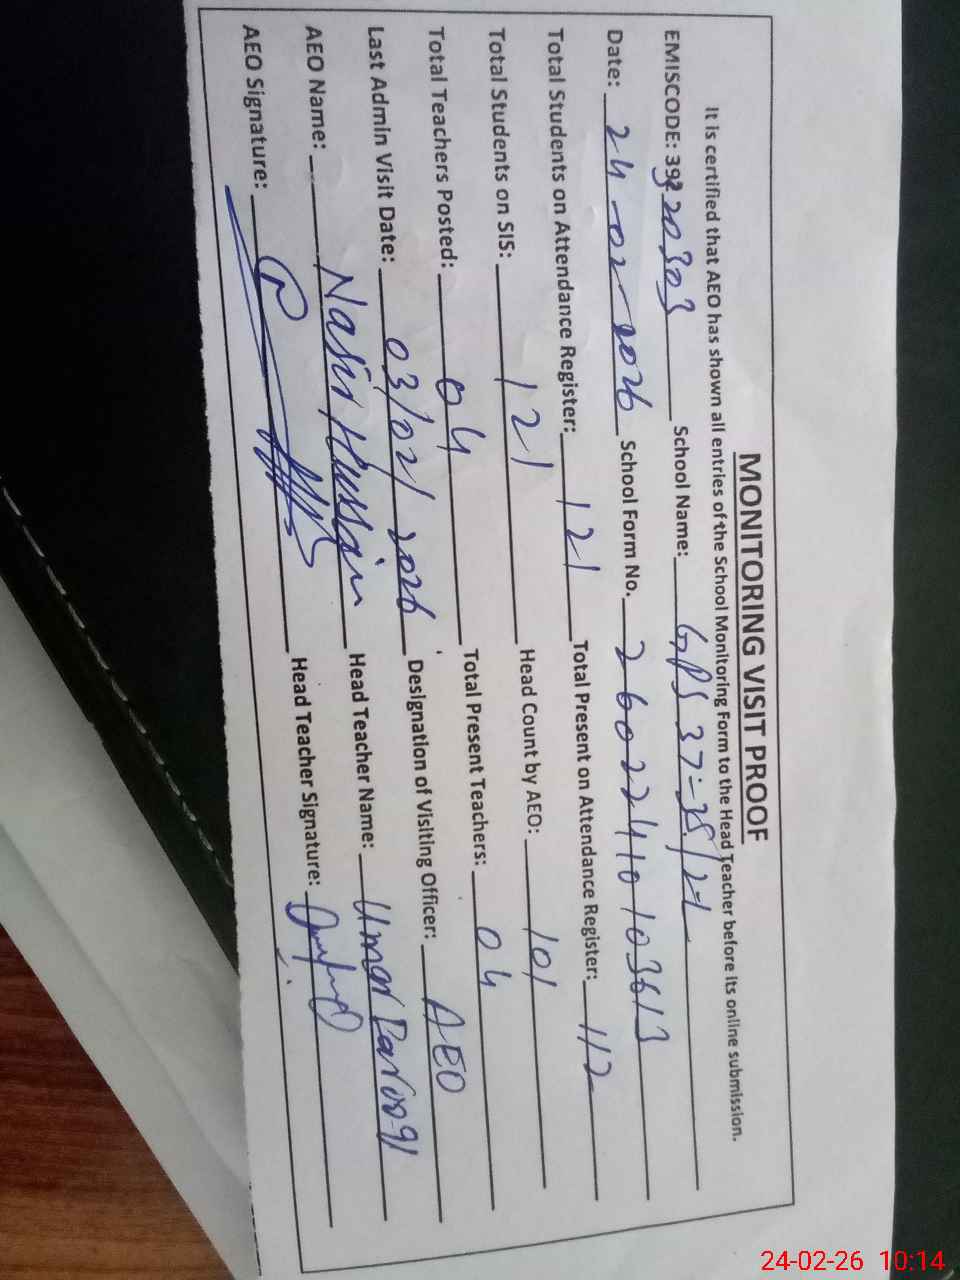 MONITORING VISIT PROOF
It is certified that AEO has shown all entries of the School Monitoring Form to the Head Teacher before its online submission.
EMISCODE: 39320303 School Name: GPS 37-38/2-L
Date: 24-02-2026 School Form No. 26022410103613
Total Students on Attendance Register: 121 Total Present on Attendance Register: 112
Total Students on SIS: 121 Head Count by AEO: 101
Total Teachers Posted: 04 Total Present Teachers: 04
Last Admin Visit Date: 03/02/2026 Designation of Visiting Officer: AEO
AEO Name: Nasir Hussain Head Teacher Name: Umar Farooq
AEO Signature: Head Teacher Signature:
24-02-26 10:14